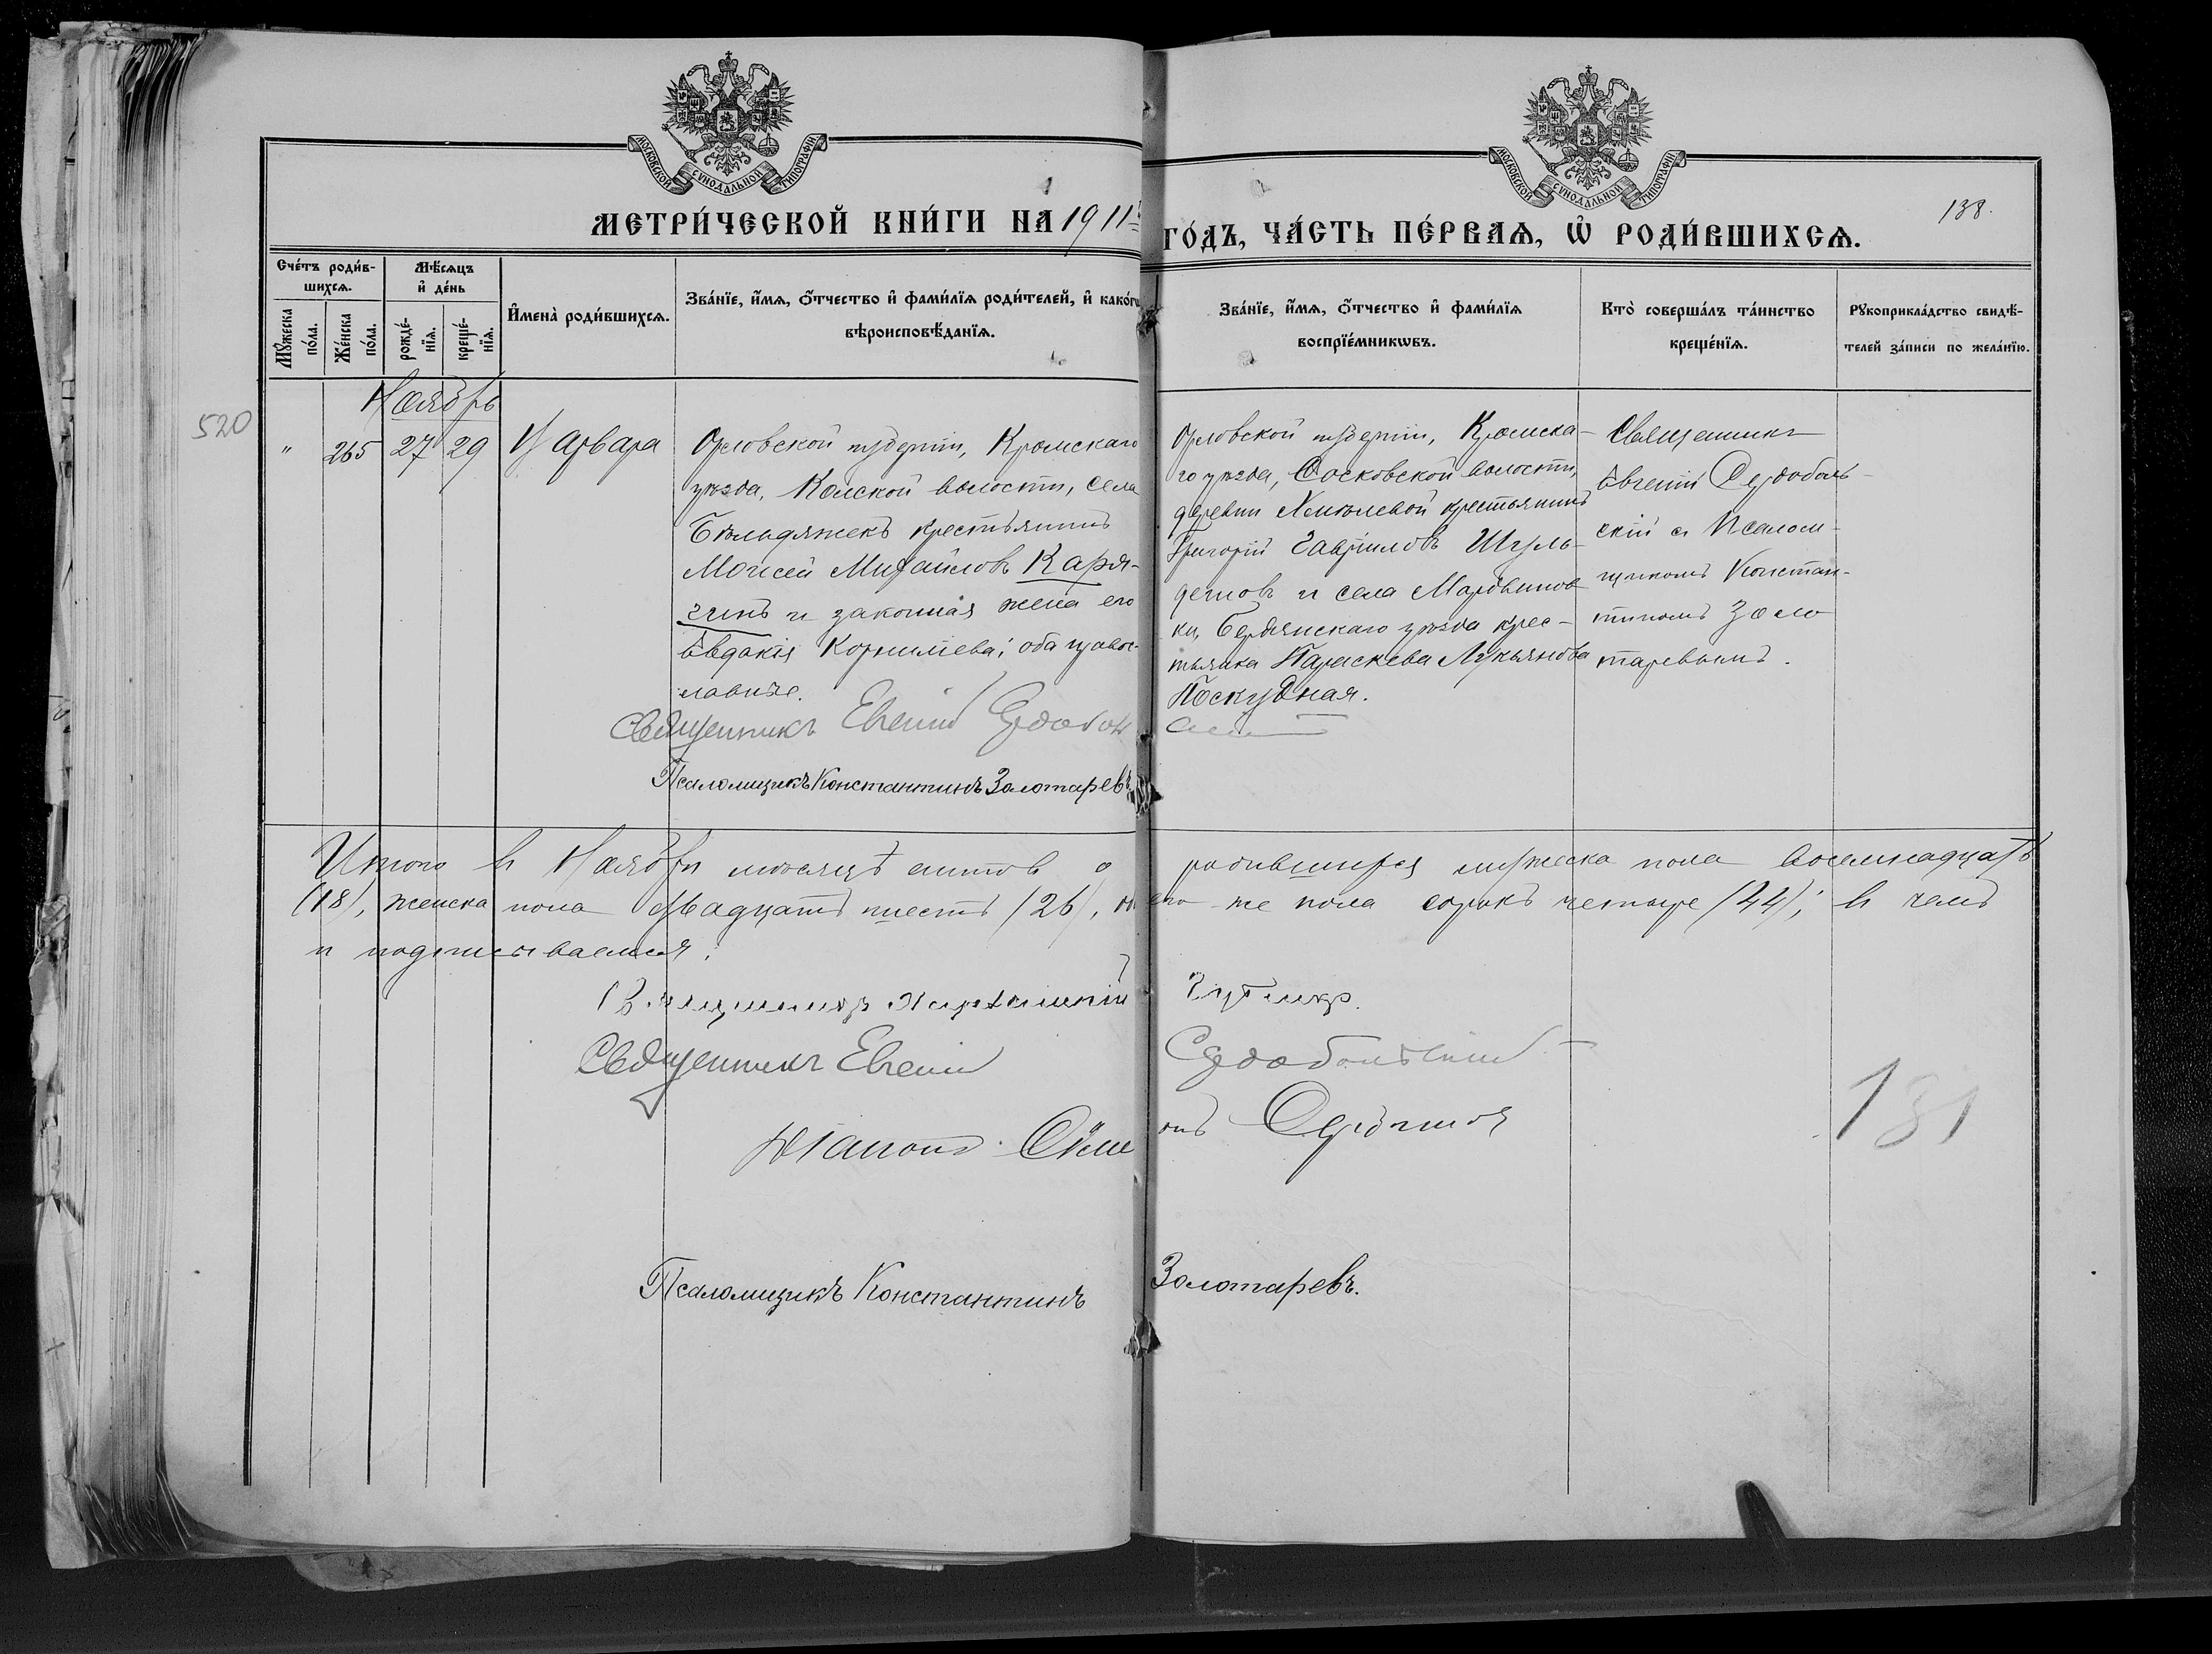 МОСКОВСКОЙ СѴНОДАЛЬНОЙ ТИПОГРАФІИ.
МОСКОВСКОЙ СѴНОДАЛЬНОЙ ТИПОГРАФІИ.
МЕТРИ́ЧЕСКОЙ КНИ́ГИ НА 1911
ГО́ДЪ, ЧА́СТЬ ПЕ́РВАѦ, Ѡ РОДИ́ВШИХСѦ.
138.
Сче́тъ роди́в-
шихсѧ.
Мꙋ́жеска
по́ла.
Же́нска
по́ла.
Мѣ́сѧцъ
и҆ де́нь
рожде́-
нїѧ.
креще́-
нїѧ.
И҆мена̀ роди́вшихсѧ.
Зва́нїе, и҆́мѧ, ѻ҆́тчество и҆ фами́лїѧ роди́телей, и҆ како́гѡ
вѣроисповѣ́данїѧ.
Зва́нїе, и҆́мѧ, ѻ҆́тчество и҆ фами́лїѧ
воспрїе́мникѡвъ.
Кто̀ соверша́лъ та́инство
креще́нїѧ.
Рꙋкоприкла́дство свидѣ́-
телей за́писи по жела́нїю.
Ноябрь
520
" 265 27 29 Варвара
Орловской губерніи, Кромскаго
уѣзда, Комской волости, села
Бѣльдяжекъ крестьянинъ
Моисей Михайловъ Каря-
гинъ и законная жена его
Евдокія Корниліева; оба правос-
лавные.
Священникъ Евгеній Сердоболь
Псаломщикъ Константинъ Золотаревъ
Орловской губерніи, Кромска-
го уѣзда, Сосковской волости,
деревни Хмѣлевой крестьянинъ
Григорій Гавриловъ Шуль-
денковъ и села Мордвинов
ки, Бердянскаго уѣзда крес-
тьянка Параскева Лукьянова
Поскудная.
скій
Священникъ
Евгеній Сердоболь-
скій съ Псалом-
щикомъ Констан-
тиномъ Золо
таревымъ.
Итого въ Ноябрѣ мѣсяцѣ актовъ о родившихся мужеска пола восемнадцать
(18), женска пола двадцать шесть (26), обоего же пола сорокъ четыре (44); въ чемъ
и подписываемся:
Священникъ Евгеній Сердобольскій
Діаконъ Симеонъ
131
Псаломщикъ Константинъ Золотаревъ.